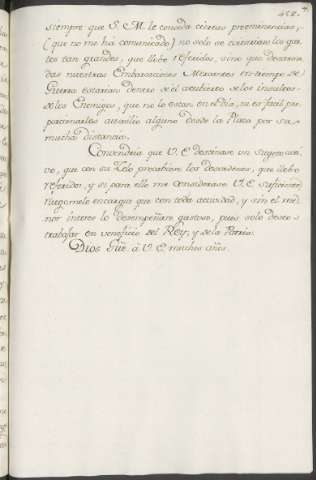 siempre que S. M. le conceda ciertas preeminencias,
(que no me ha comunicado) no solo se evitarian los gas
tos tan grandes, que llebo referidos, sino que desarma
das nuestras Embarcaciones Mercantes en tiempo de
Guerra estarian dentro de él acubierto de los insultos
de los Enemigos, que no lo estan en el dia, ni es facil pro
porcionarles auxilio alguno desde la Plaza por su
mucha distancia.
Convendria que V. E. destinase un sugeto
que con su Zelo precabiese los desordenes, que llebo
referidos, y si para ello me considerase V. E. suficiente
ruego me lo encargue que con toda actividad, y sin el me
nor interes lo desempeñare gustoso, pues solo deseo
trabajar en veneficio del Rey, y de la Patria.
Dios güe. á V. E. muchos años.